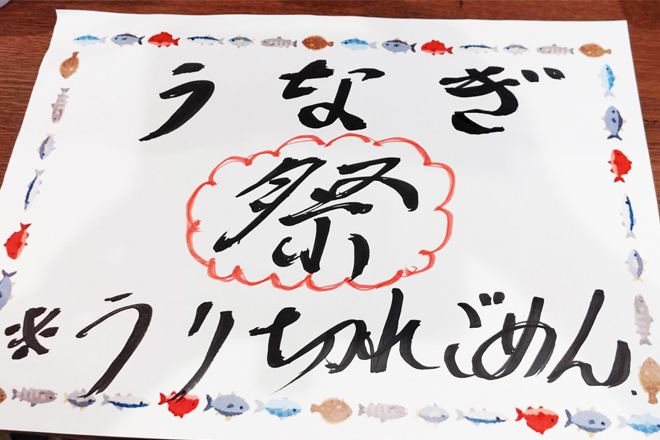 うなぎ
祭
※うりちれごめん.